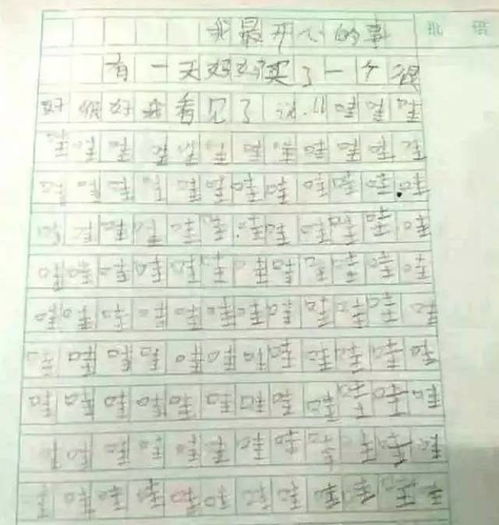 我最开心的事
批 语
有一天妈妈买了一个很
好很好我看见了说:"哇哇哇
哇哇哇哇哇哇哇哇哇哇哇哇
哇哇哇哇哇哇哇哇哇哇哇哇
哇哇哇哇哇哇哇哇哇哇哇哇
哇哇哇哇哇哇哇哇哇哇哇哇
哇哇哇哇哇哇哇哇哇哇哇哇
哇哇哇哇哇哇哇哇哇哇哇哇
哇哇哇哇哇哇哇哇哇哇哇哇
哇哇哇哇哇哇哇哇哇哇哇哇
哇哇哇哇哇哇哇哇哇哇哇哇